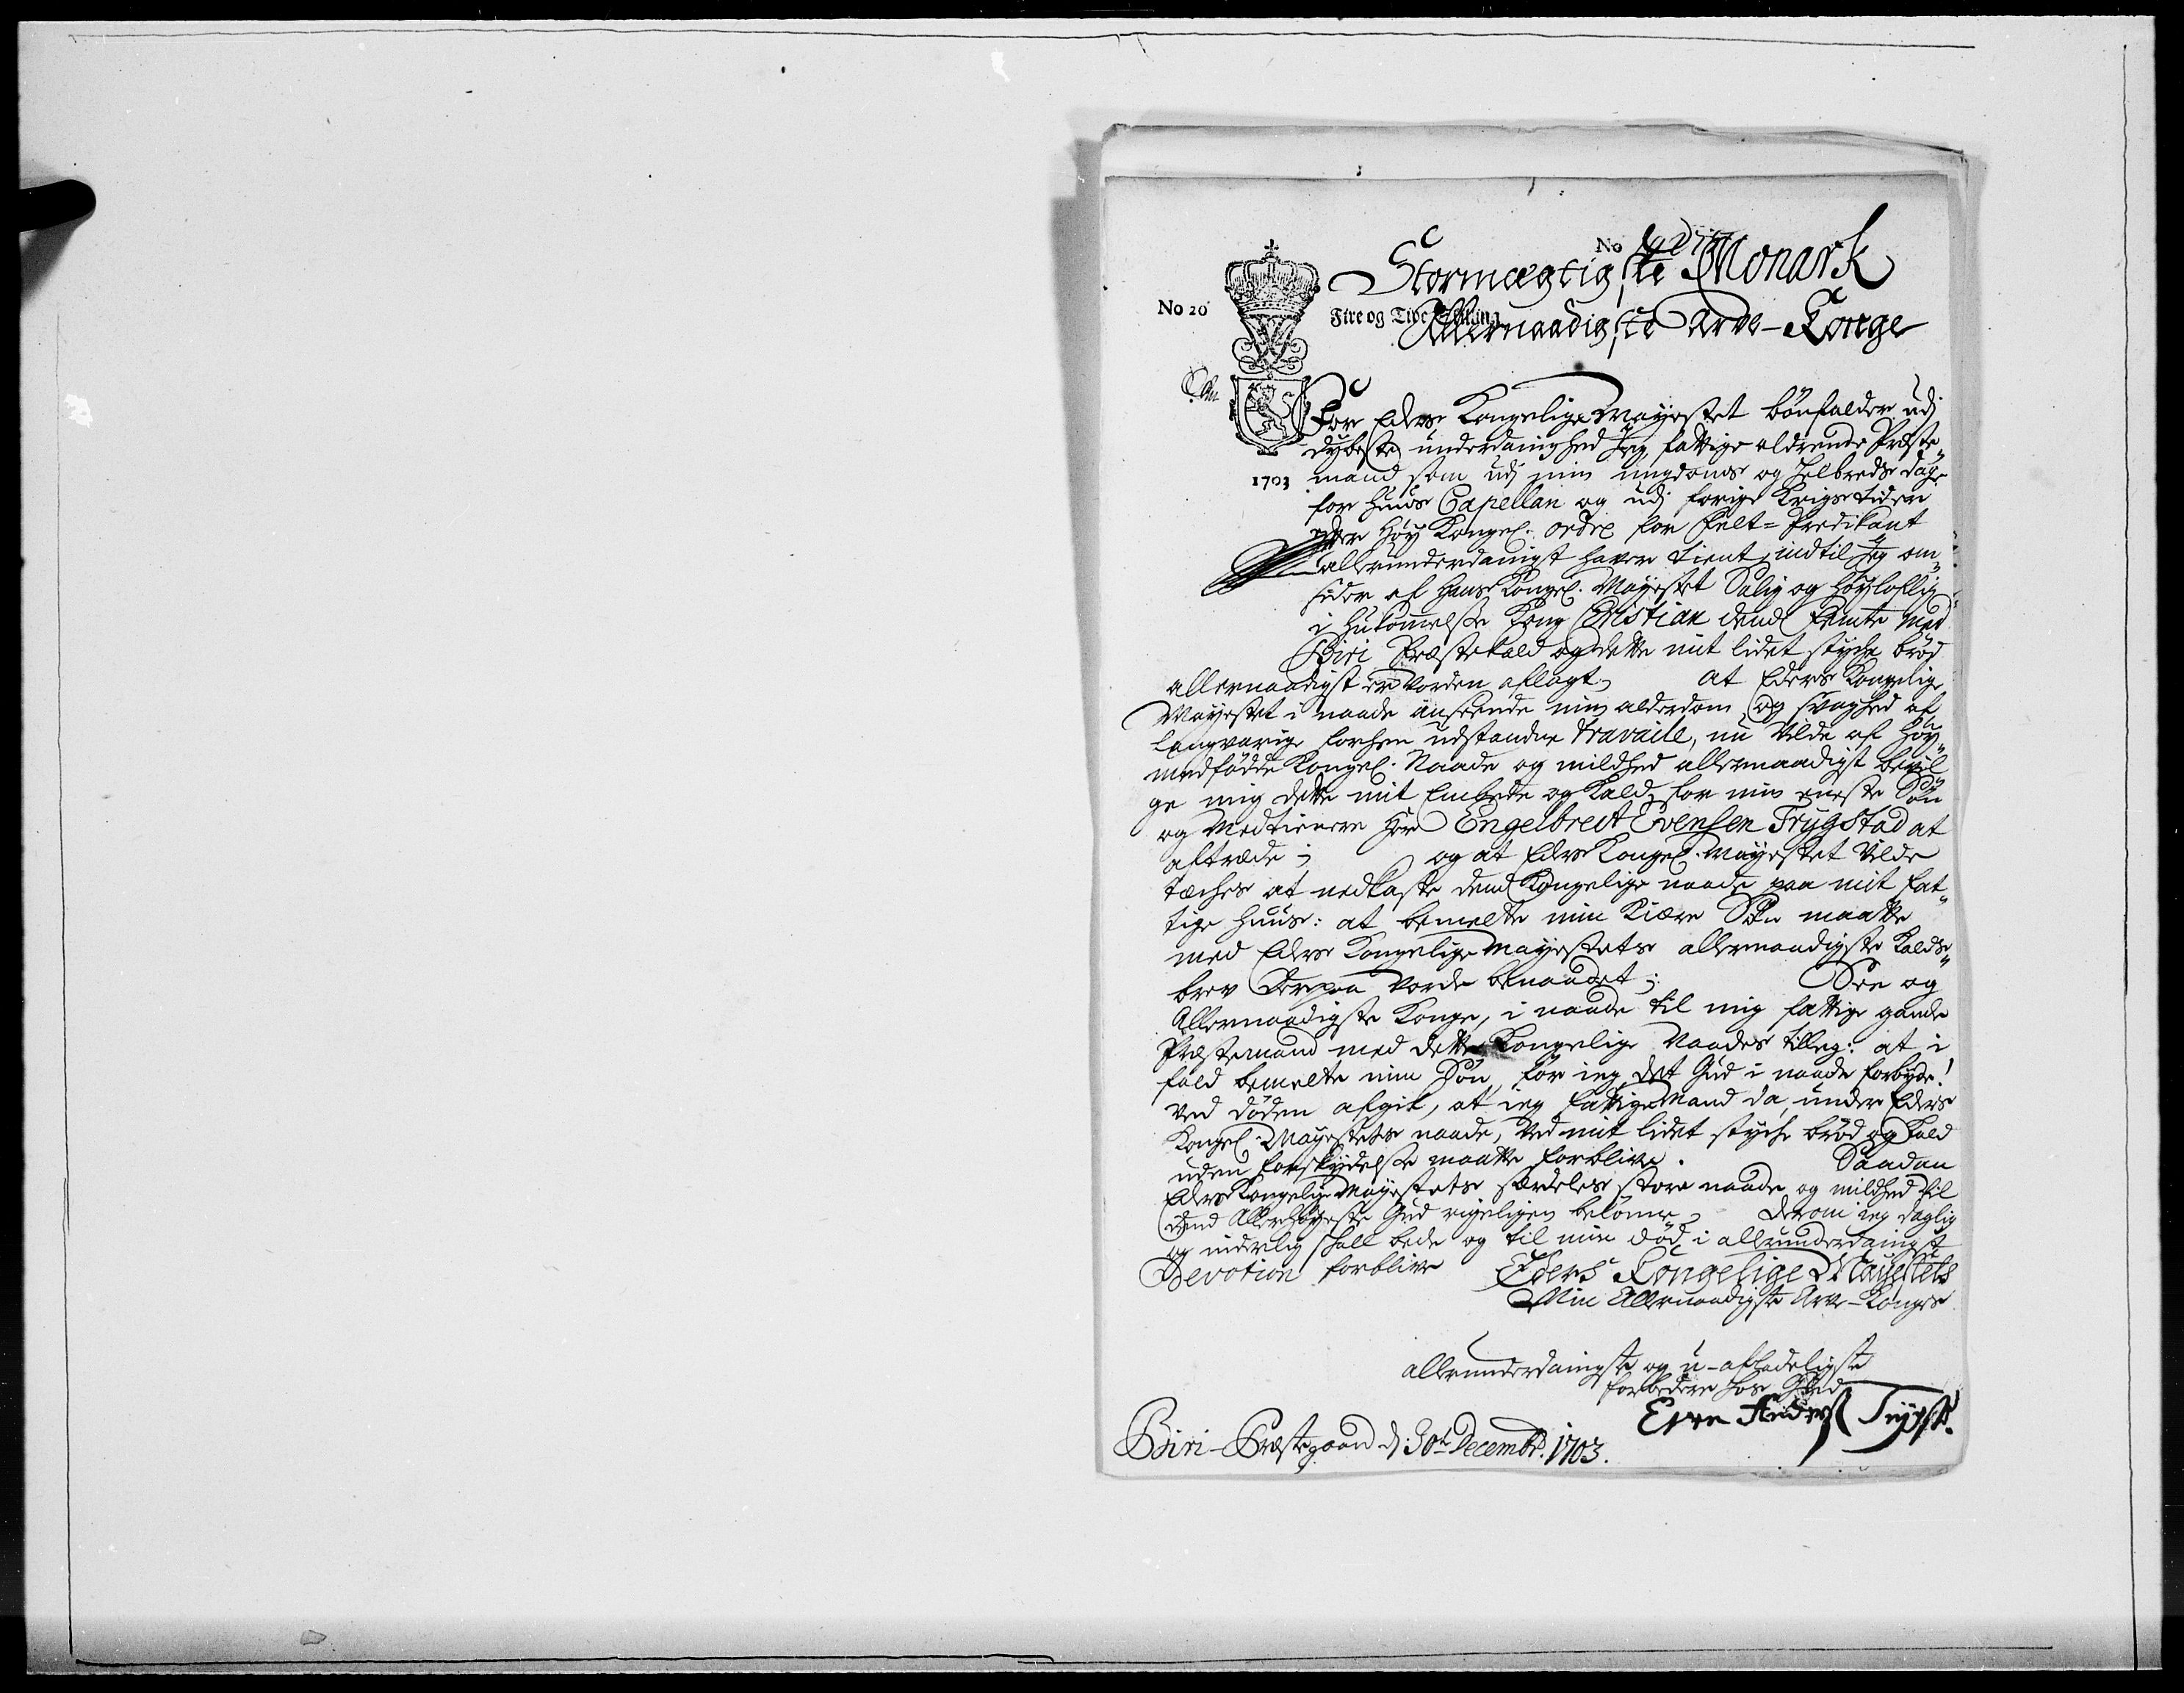 No
Stormægtigste Monark
No 20
Fire og Tive Skilling
Allernaadigste Arve-Konge
For Eders Kongelige Mayestet bönfalder udj
dybeste underdanighed Jeg fattige aldrende Præste„
1703 mand som udj min ungdoms og helbreds dage
for Huus Capellan og udj forige Krigs tider
efter Høy Kongel: ordre for Felt-Predikant
allerunderdanigst haver tient, indtil Jeg om„
sider af Hans Kongel: Mayestet Salig og Høyloflig
i hukommelsse Kong Christian dend Femte med
Biri Præstekald og dette mit lidet stycke brød
allernaadigst er vorden aflagt; at Eders Kongelige
Mayestet i naade anseende min alderdom og svaghed af
langvarige forhen udstandne travaile, nu vilde af Høy„
medfødde Kongel: Naade og mildhed allernaadigst bevil„
ge mig dette mit Embede og Kald for min eneste Søn
og Medtienere Her Engelbrect Evensen Trygstad at
aftræde; og at Eders Kongel: Mayestet vilde
tæckes at nedkaste dend Kongelige naade paa mit fat„
tige Huus: at bemelte min Kiære Søn maatte
med Eders Kongelige Mayestets allernaadigste Kalds„
brev derpaa vorde benaadet; See og
Allernaadigste Konge, i naade til mig fattige gamle
Præstemand med dette Kongelige Naades tilleg: at i
fald bemelte min Søn, før ieg, det Gud i naade forbyde!
ved døden afgik, at ieg fattige Mand da, under Eders
Kongel: Mayestets naade, ved mit lidet stycke brød og Kald
uden forskydelsse maatte forblive. Saadan
Eders Kongelige Mayestets særdeles store naade og mildhed vil
dend Allerhøyeste Gud rigeligen belønne, derom ieg daglig
og inderlig skall bede og til min død i allerunderdanigst
Devotion forblive Eders Kongelige Mayestets
Min Allernaadigste Arve-Konges
allerunderdanigste og u-afladeligste
forbedere hos Gud
Even Anders Trygst.
Biri-Præstegaard d: 30te Decembr. 1703.